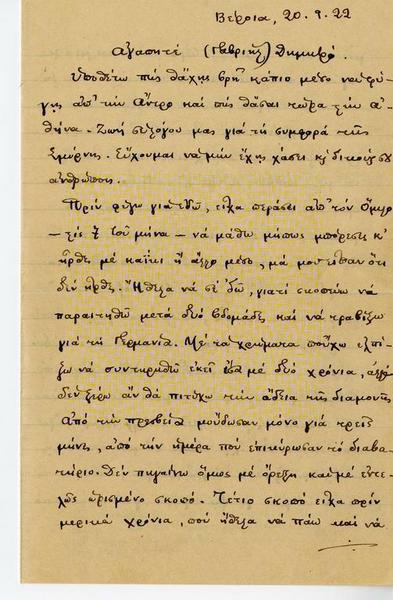 Βέροια, 20.9.22
Αγαπητέ (Γαβριήλ) Δημητρό.
Υποθέτω πώς θάχης βρῆ κάπιο μέσο να φύ-
γης απ' την Άντρο και πώς θάσαι τώρα στην Α-
θήνα. μας για τη συμφορά της
Σμύρνης. Εύχουμαι να μην έχης χάσει κι δικούς σου
ανθρώπους.
Πριν φύγω για εδώ, είχα περάσει απ' τον Όμηρο
— στις 7 του μήνα — νά μάθω μήπως μπόρεσες κ'
ήρθες μέ καΐκι ή άλλο μέσο, μά μου είπαν ότι
δέν ήρθες. Ήθελα νά σέ ιδώ, γιατί σκοπεύω νά
παραιτηθώ μετά δυό βδομάδες και νά τραβήξω
γιά τη Γερμανία. Μέ τα χρήματα πούχω ελπί-
ζω νά συντηρηθώ εκεί ίσα μέ δυό χρόνια, αλλά
δεν ξέρω άν θά πιτύχω την άδεια της διαμονής
Από την πρεσβεία μούδωσαν μόνο γιά τρείς
μήνες, από την ημέρα πού επικύρωσαν τό διαβα-
τήριο. Δεν πηγαίνω όμως μέ όρεξη και μέ εντε-
λώς ωρισμένο σκοπό. Τέτιο σκοπό είχα πρίν
μερικά χρόνια, πού ήθελα νά πάω και νά